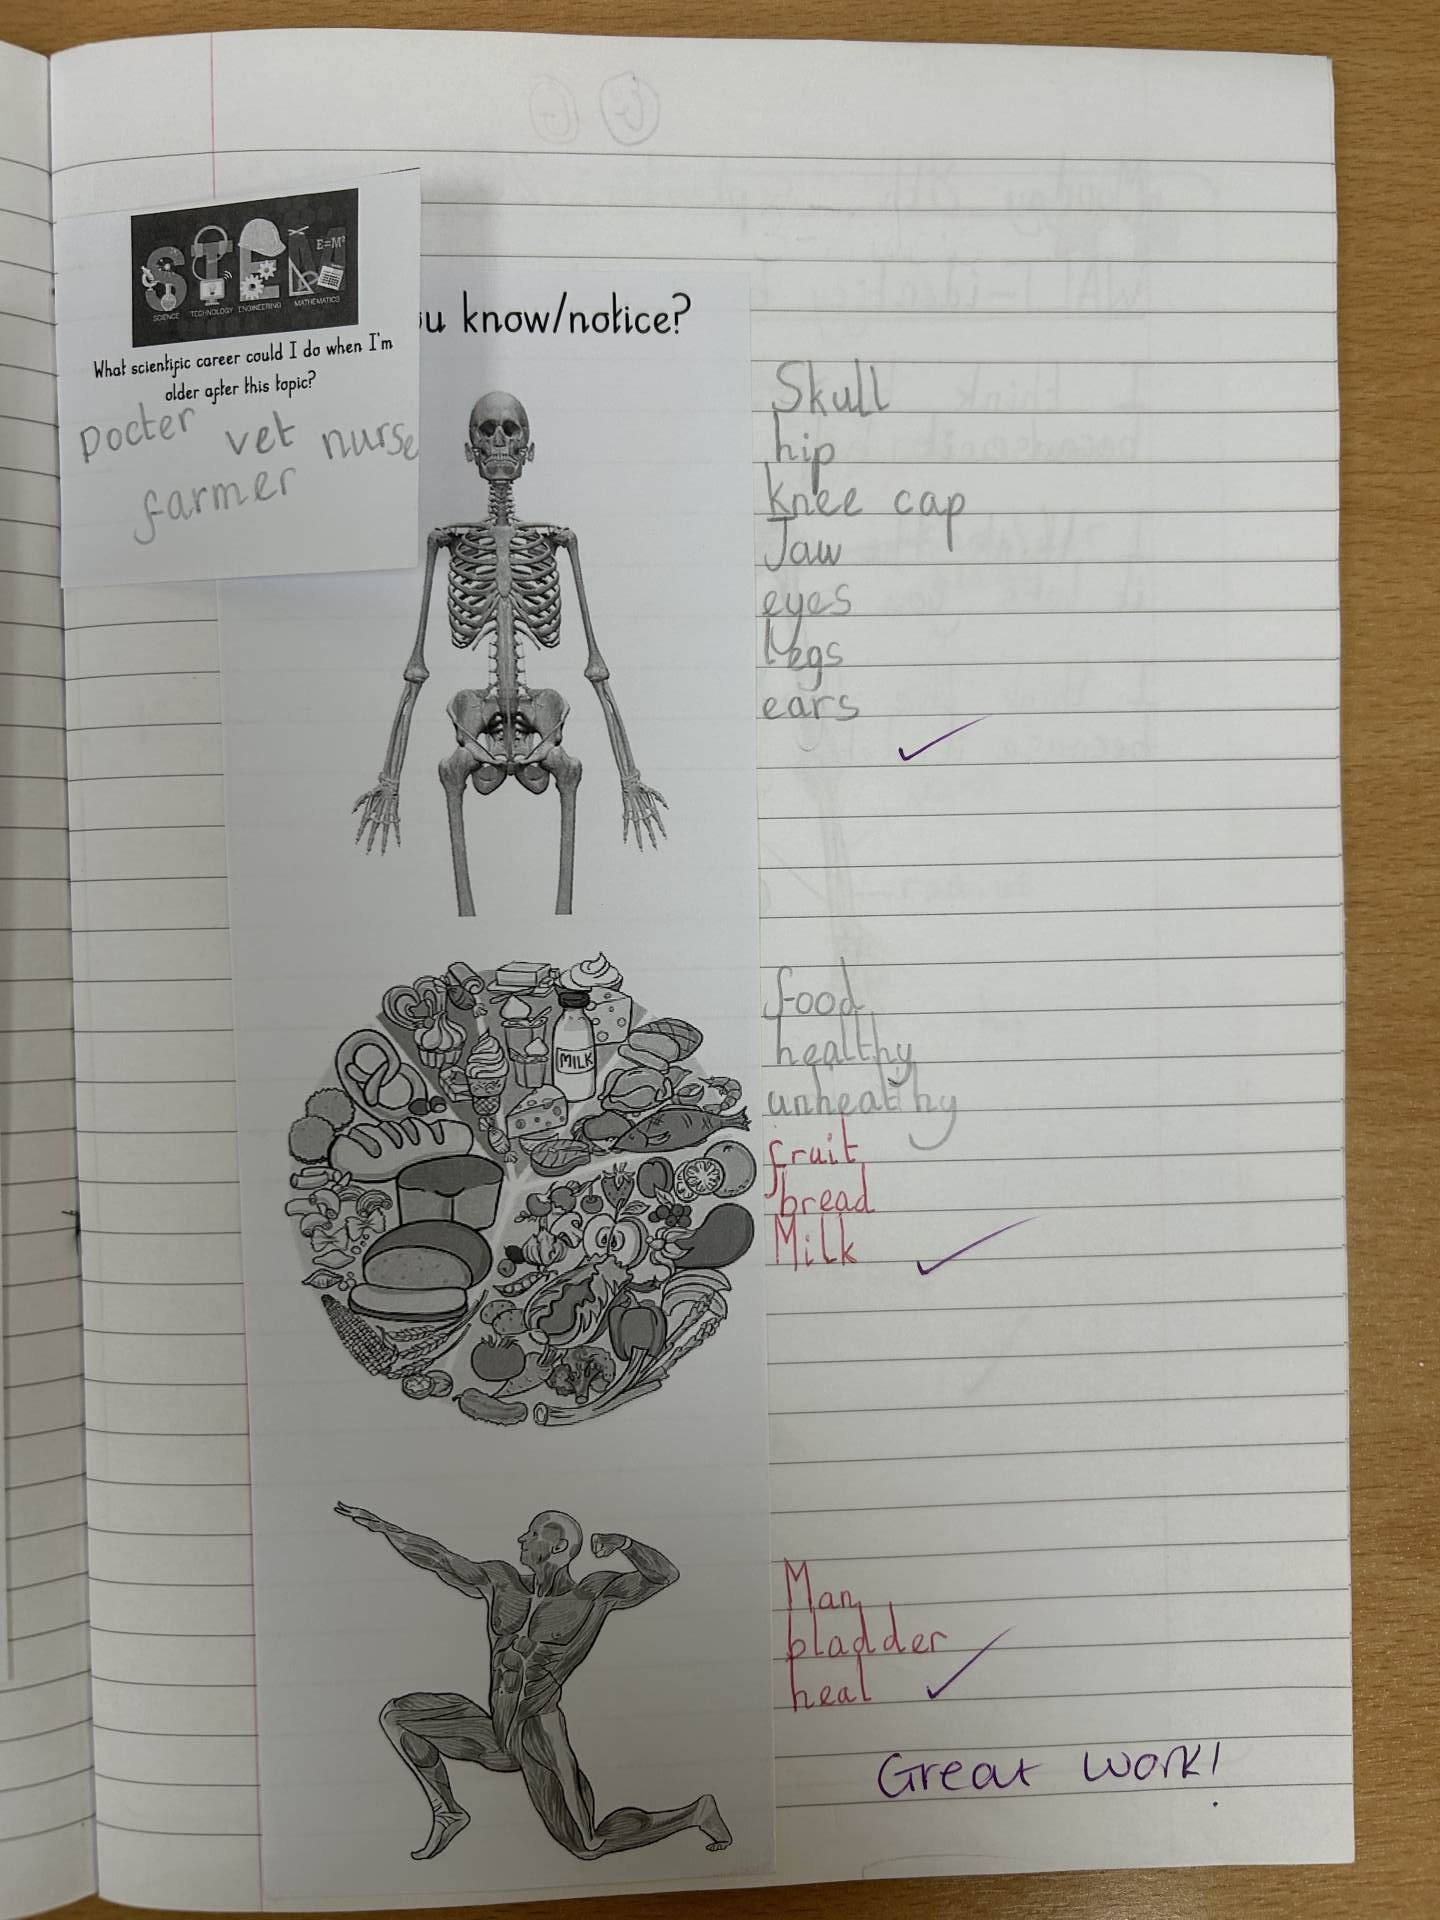 STEM
E=M²
SCIENCE TECHNOLOGY ENGINEERING MATHEMATICS
What scientific career could I do when I'm
older after this topic?
Docter vet nurse
farmer
ou know/notice?
Skull
hip
knee cap
Jaw
eyes
legs
ears
MILK
food
healthy
unhealthy
fruit
bread
Milk
Man
bladder
heal
Great work!